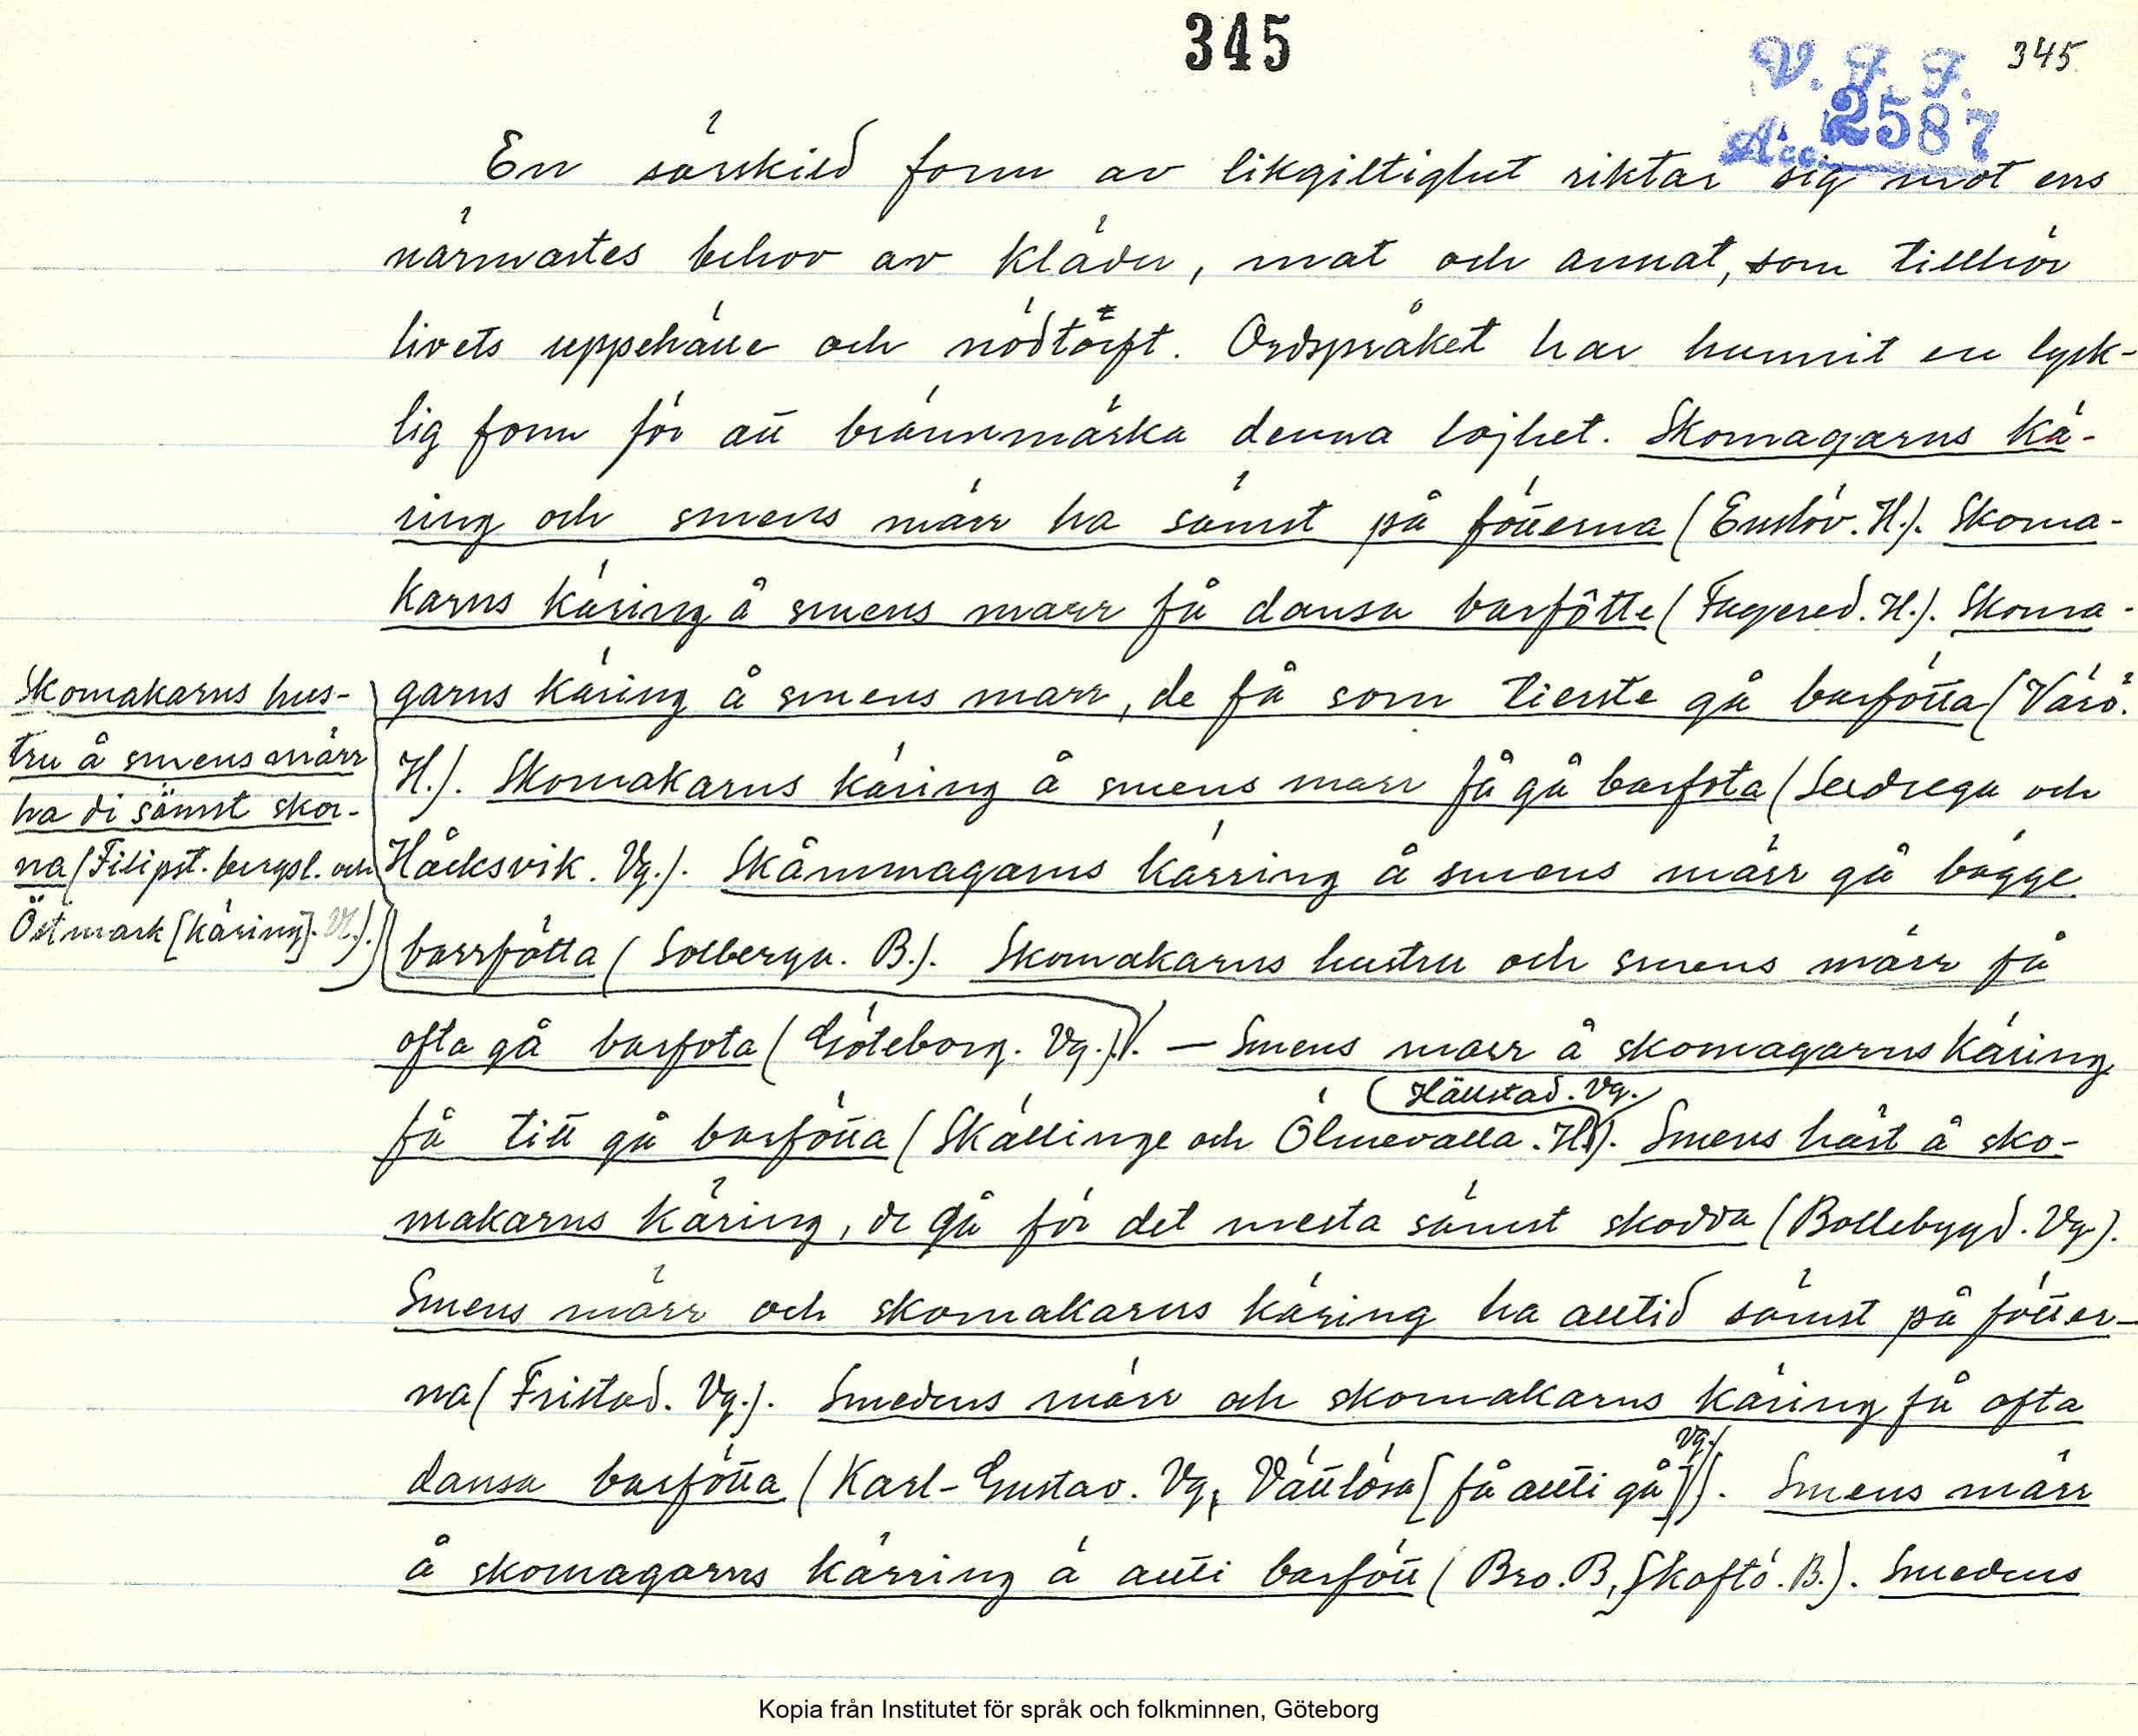 345
345
V. F. F.
Acc. 2587
En särskild form av likgiltighet riktar sig mot ens
närmastes behov av kläder, mat och annat, som tillhör
livets uppehälle och nödtorft. Ordspråket har hunnit en lyck-
lig form för att brännmärka denna löjhet. Skomagarns kä-
ring och smens märr ha sämst på fötterna (Enslöv. H.). Skoma-
karns käring å smens marr få dansa barfôtte (Fagered. H.). Skoma-
garns käring å smens marr, de få som tierste gå barfötta (Värö.
H.). Skomakarns käring å smens marr få gå barfota (Seglora och
Håcksvik. Vg.). Skåmmagarns kärring å smens märr gå bägge
barrfötta (Solberga. B.). Skomakarns hustru och smens märr få
ofta gå barfota (Göteborg. Vg.). — Smens marr å skomagarns käring
få titt gå barfötta (Skällinge och Ölmevalla. H.). Smens häst å sko-
(Hällstad. Vg.
makarns käring, de gå för det mesta sämst skodda (Bollebygd. Vg).
Smens märr och skomakarns käring ha alltid sämst på fötter-
na (Fristad. Vg.). Smedens märr och skomakarns käring få ofta
dansa barfötta (Karl-Gustav. Vg, Vättlösa [få allti gå] Vg.). Smens märr
å skomagarns kärring ä allti barfött (Bro. B, Skaftö. B.). Smedens
Skomakarns hus-
tru å smens märr
ha di sämst skor-
na (Filipst. bergsl. och
Östmark [käring]. Vl.).
Kopia från Institutet för språk och folkminnen, Göteborg